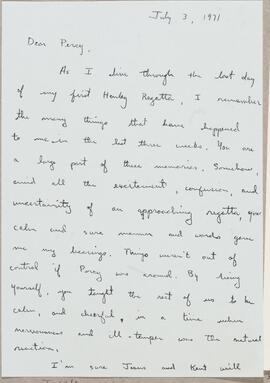 July 3, 1971
Dear Percy,
As I live through the last day
of my first Henley Regatta, I remember
the many things that have happened
to me in the last three weeks. You are
a large part of these memories. Somehow,
amid all the excitement, confusion, and
uncertainty of an approaching regatta, your
calm and sure manner and words gave
me my bearings. Things weren't out of
control if Percy was around. By being
yourself, you taught the rest of us to be
calm, and cheerful, in a time when
nervousness and ill-temper was the natural
reaction.
I'm sure Jesus and Kent will